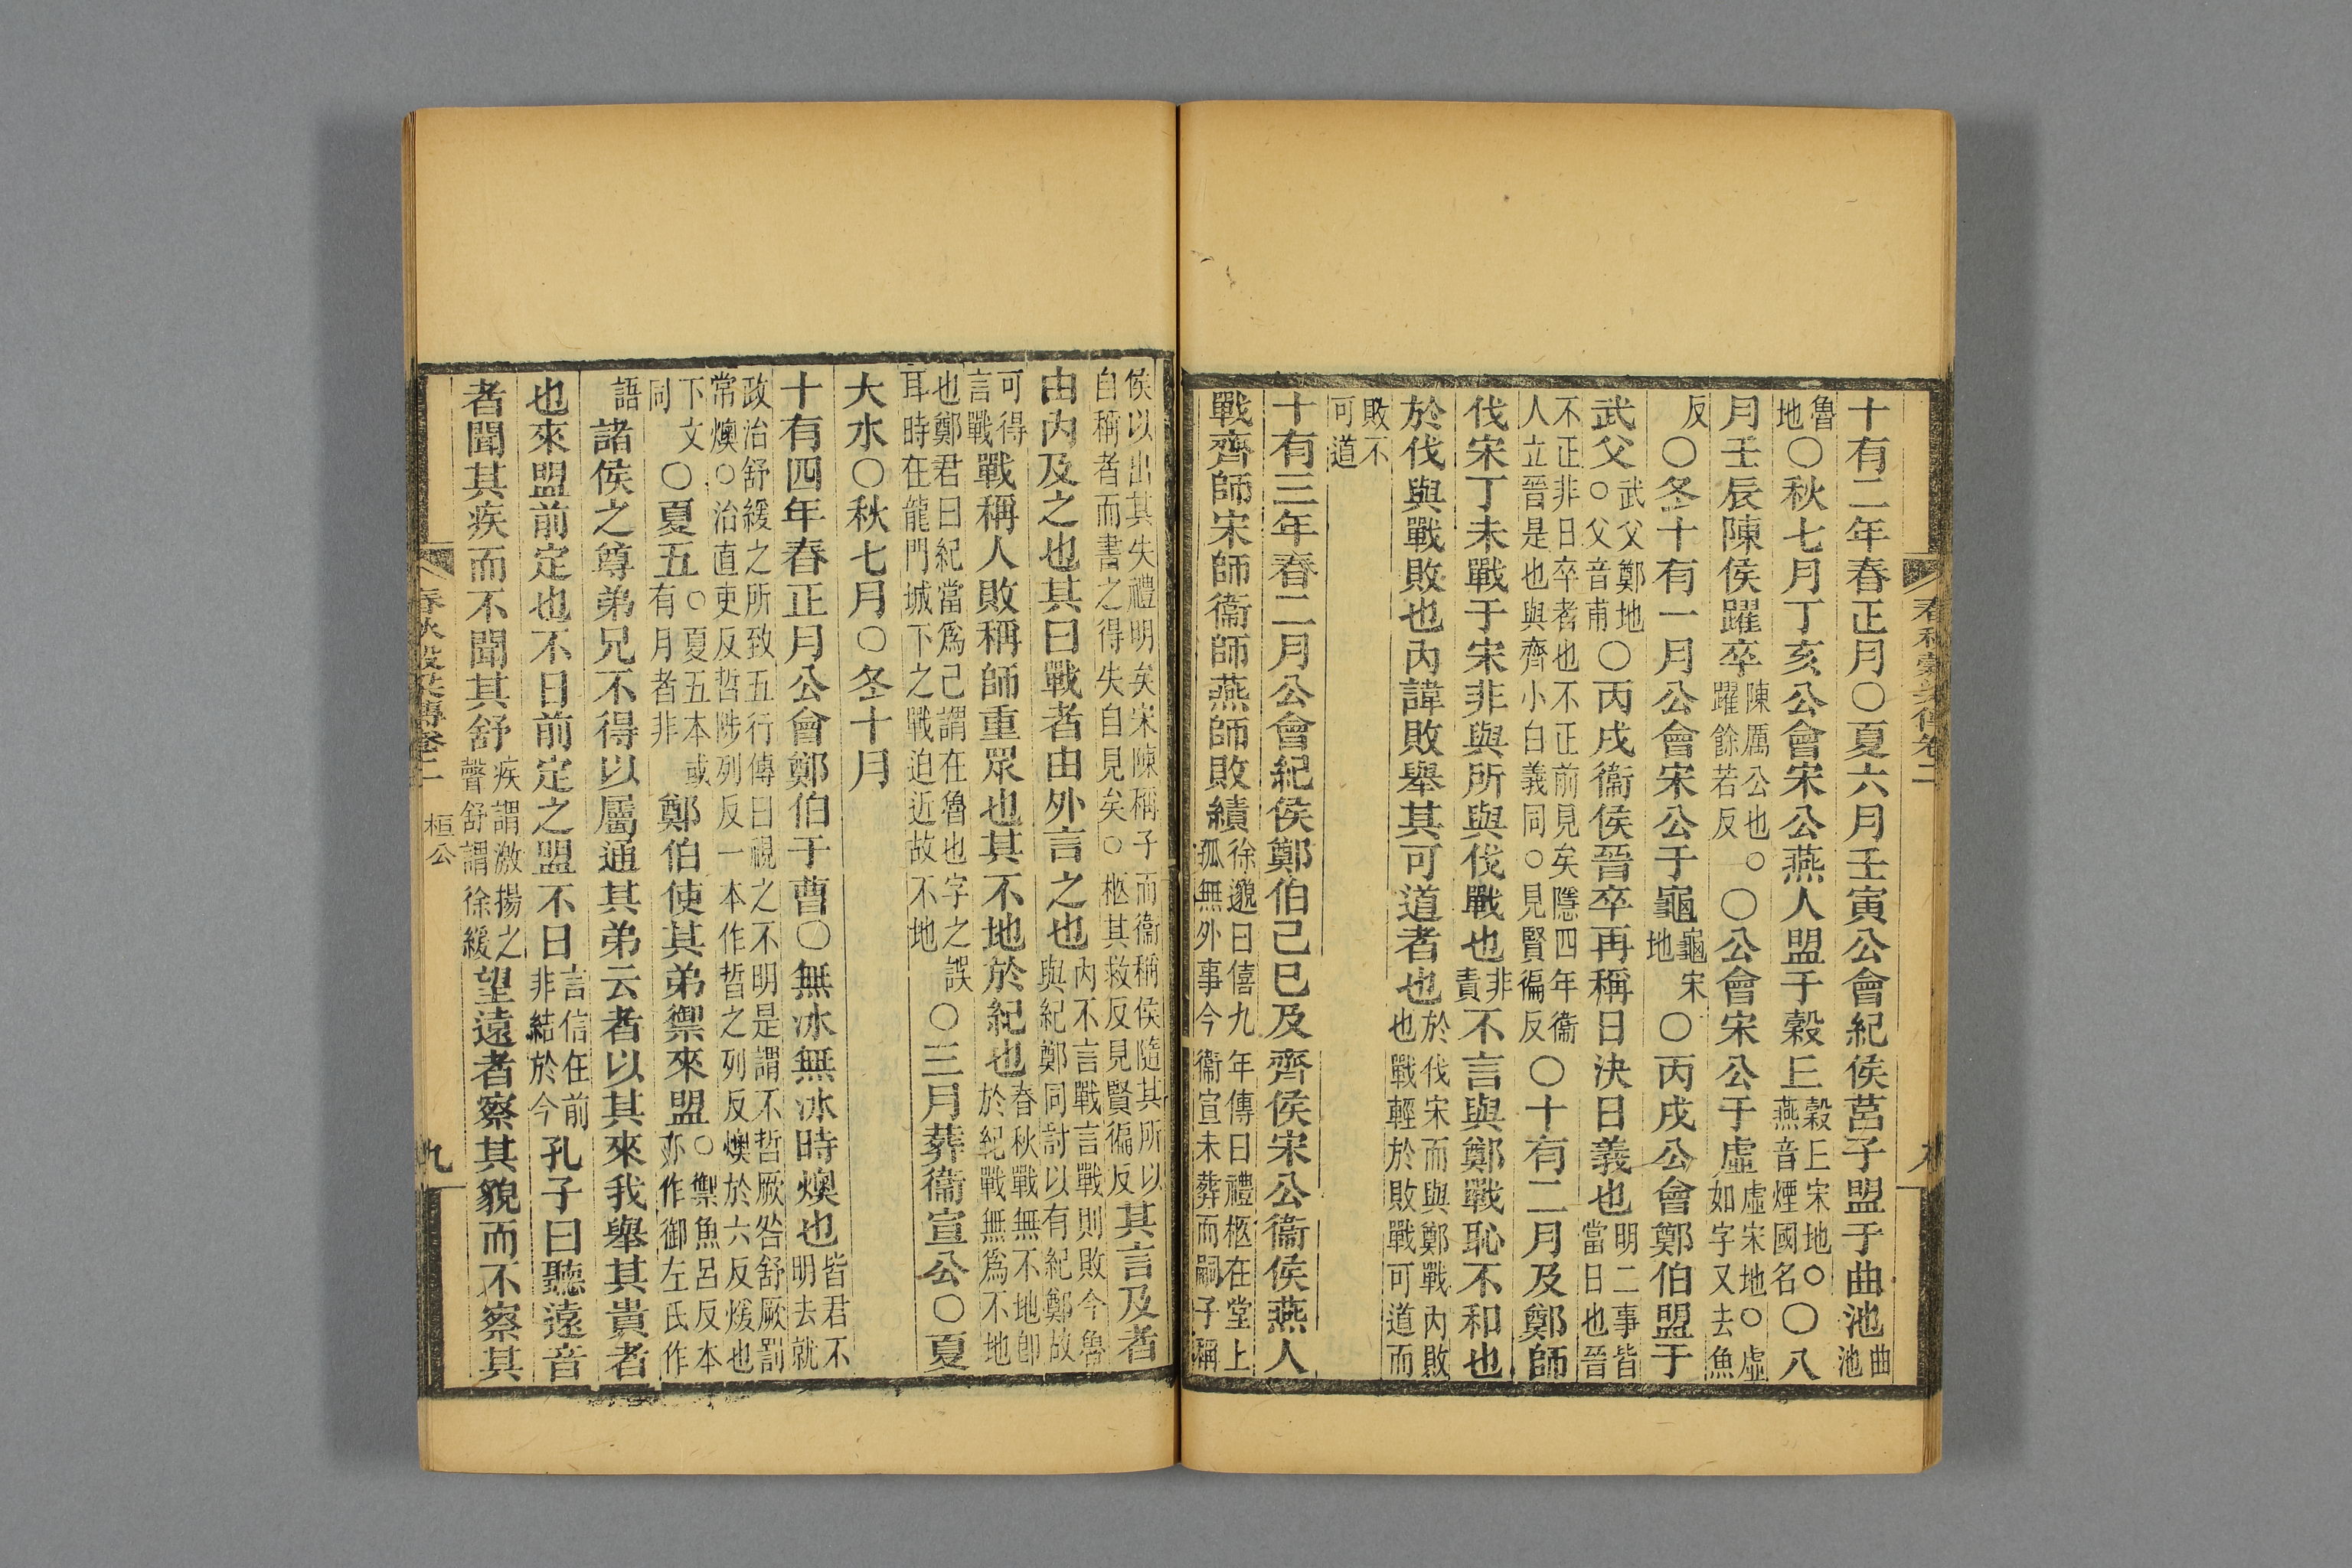 十有二年春正月○夏六月壬寅公會紀侯莒子盟于曲池曲池
魯地○秋七月丁亥公會宋公燕人盟于穀丘穀丘宋地○燕音煙國名○八
月壬辰陳侯躍卒陳厲公也○躍餘若反○公會宋公于虛虛宋地○虛如字又去魚
反○冬十有一月公會宋公于龜龜宋地○丙戌公會鄭伯盟于
武父武父鄭地○父音甫○丙戌衞侯晉卒再稱日決日義也明二事皆當日也晉
不正非日卒者也不正前見矣隱四年衞人立晉是也與齊小白義同○見賢徧反○十有二月及鄭師
伐宋丁未戰于宋非與所與伐戰也非責不言與鄭戰恥不和也
於伐與戰敗也內諱敗舉其可道者也於伐宋而與鄭戰內敗也戰輕於敗戰可道而
敗不可道
十有三年春二月公會紀侯鄭伯己巳及齊侯宋公衞侯燕人
戰齊師宋師衞師燕師敗績徐邈曰僖九年傳曰禮柩在堂上孤無外事今衞宣未葬而嗣子稱
侯以出其失禮明矣宋陳稱子而衞稱侯隨其所以自稱者而書之得失自見矣○柩其救反見賢徧反其言及者
由內及之也其曰戰者由外言之也內不言戰言戰則敗今魯與紀鄭同討以有紀鄭故
可得言戰戰稱人敗稱師重眾也其不地於紀也春秋戰無不地即於紀戰無爲不地
也鄭君曰紀當爲己謂在魯也字之誤耳時在龍門城下之戰迫近故不地○三月葬衞宣公○夏
大水○秋七月○冬十月
十有四年春正月公會鄭伯于曹○無冰無冰時燠也皆君不明去就
政治舒緩之所致五行傳曰視之不明是謂不哲厥咎舒厥罰常燠○治直吏反哲陟列反一本作晢之列反燠於六反煖也
下文同○夏五○夏五本或有月者非鄭伯使其弟禦來盟○禦魚呂反本亦作御左氏作
語諸侯之尊弟兄不得以屬通其弟云者以其來我舉其貴者
也來盟前定也不日前定之盟不日言信在前非結於今孔子曰聽遠音
者聞其疾而不聞其舒疾謂激揚之聲舒謂徐緩望遠者察其貌而不察其
春秋穀梁傳卷二 桓公 九